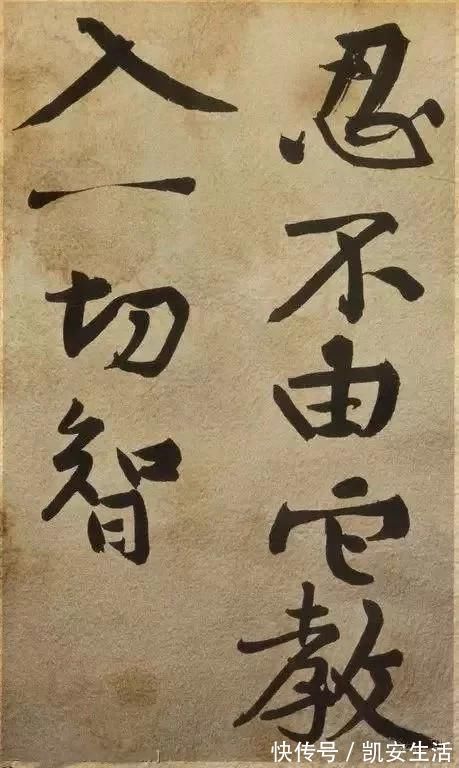 忍不由它教
入一切智
快传号 / 凯安生活